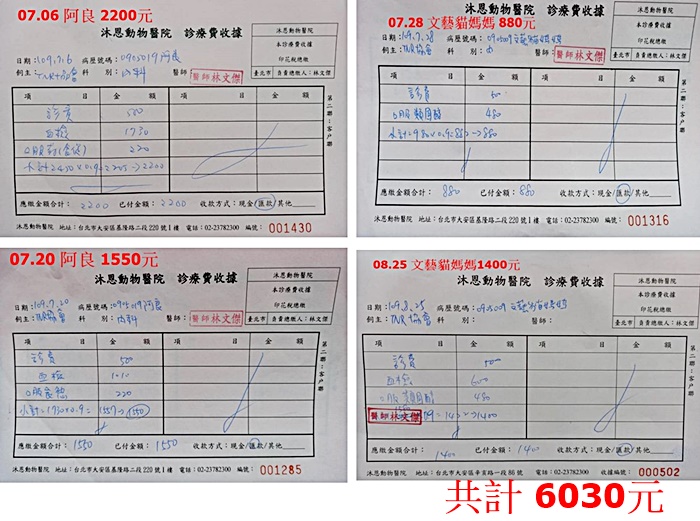 07.06 阿良 2200元
沐恩動物醫院 診療費收據
沐恩動物醫院
本診療費收據
印花稅總繳
臺北市 負責總繳人:林文傑
日期:109.7.6 病歷號碼:0905019阿良
飼主:TNR協會 科 別:內科 醫師:醫師林文傑
項 目 金 額 項 目 金 額
診費 500
血檢 1730
口服藥 220
小計2450×0.9=2205→2200
應繳金額合計:2200 已付金額:2200 收款方式:現金/匯款/其他
沐恩動物醫院 地址:台北市大安區基隆路二段220號1樓 電話:02-23782300 編號:001430
第二聯:客戶聯
07.28 文藝貓媽媽 880元
沐恩動物醫院 診療費收據
沐恩動物醫院
本診療費收據
印花稅總繳
臺北市 負責總繳人:林文傑
日期:109.7.28 病歷號碼:0905009文藝貓媽媽
飼主:TNR協會 科 別:內 醫師:醫師林文傑
項 目 金 額 項 目 金 額
診費 500
口服類固醇 480
小計=980×0.9=882→880
應繳金額合計:880 已付金額:880 收款方式:現金/匯款/其他
沐恩動物醫院 地址:台北市大安區基隆路二段220號1樓 電話:02-23782300 編號:001316
第二聯:客戶聯
07.20 阿良 1550元
沐恩動物醫院 診療費收據
沐恩動物醫院
本診療費收據
印花稅總繳
臺北市 負責總繳人:林文傑
日期:109.7.20 病歷號碼:0905019阿良
飼主:TNR協會 科 別:內科 醫師:醫師林文傑
項 目 金 額 項 目 金 額
診費 500
血檢 1010
口服 220
小計=1730×0.9=1557→1550
應繳金額合計:1550 已付金額:1550 收款方式:現金/匯款/其他
沐恩動物醫院 地址:台北市大安區基隆路二段220號1樓 電話:02-23782300 編號:001285
第二聯:客戶聯
08.25 文藝貓媽媽1400元
沐恩動物醫院 診療費收據
沐恩動物醫院
本診療費收據
印花稅總繳
臺北市 負責總繳人:林文傑
日期:109.8.25 病歷號碼:0905009文藝貓媽媽
飼主:TNR協會 科 別: 醫師:
項 目 金 額 項 目 金 額
診費 500
血檢 600
口服類固醇 480
醫師林文傑 →1400
應繳金額合計:1400 已付金額:1400 收款方式:現金/匯款/其他
沐恩動物醫院 地址:台北市大安區辛亥路一段86號 電話:02-23782300 收據編號:000502
第二聯:客戶聯
共計 6030元